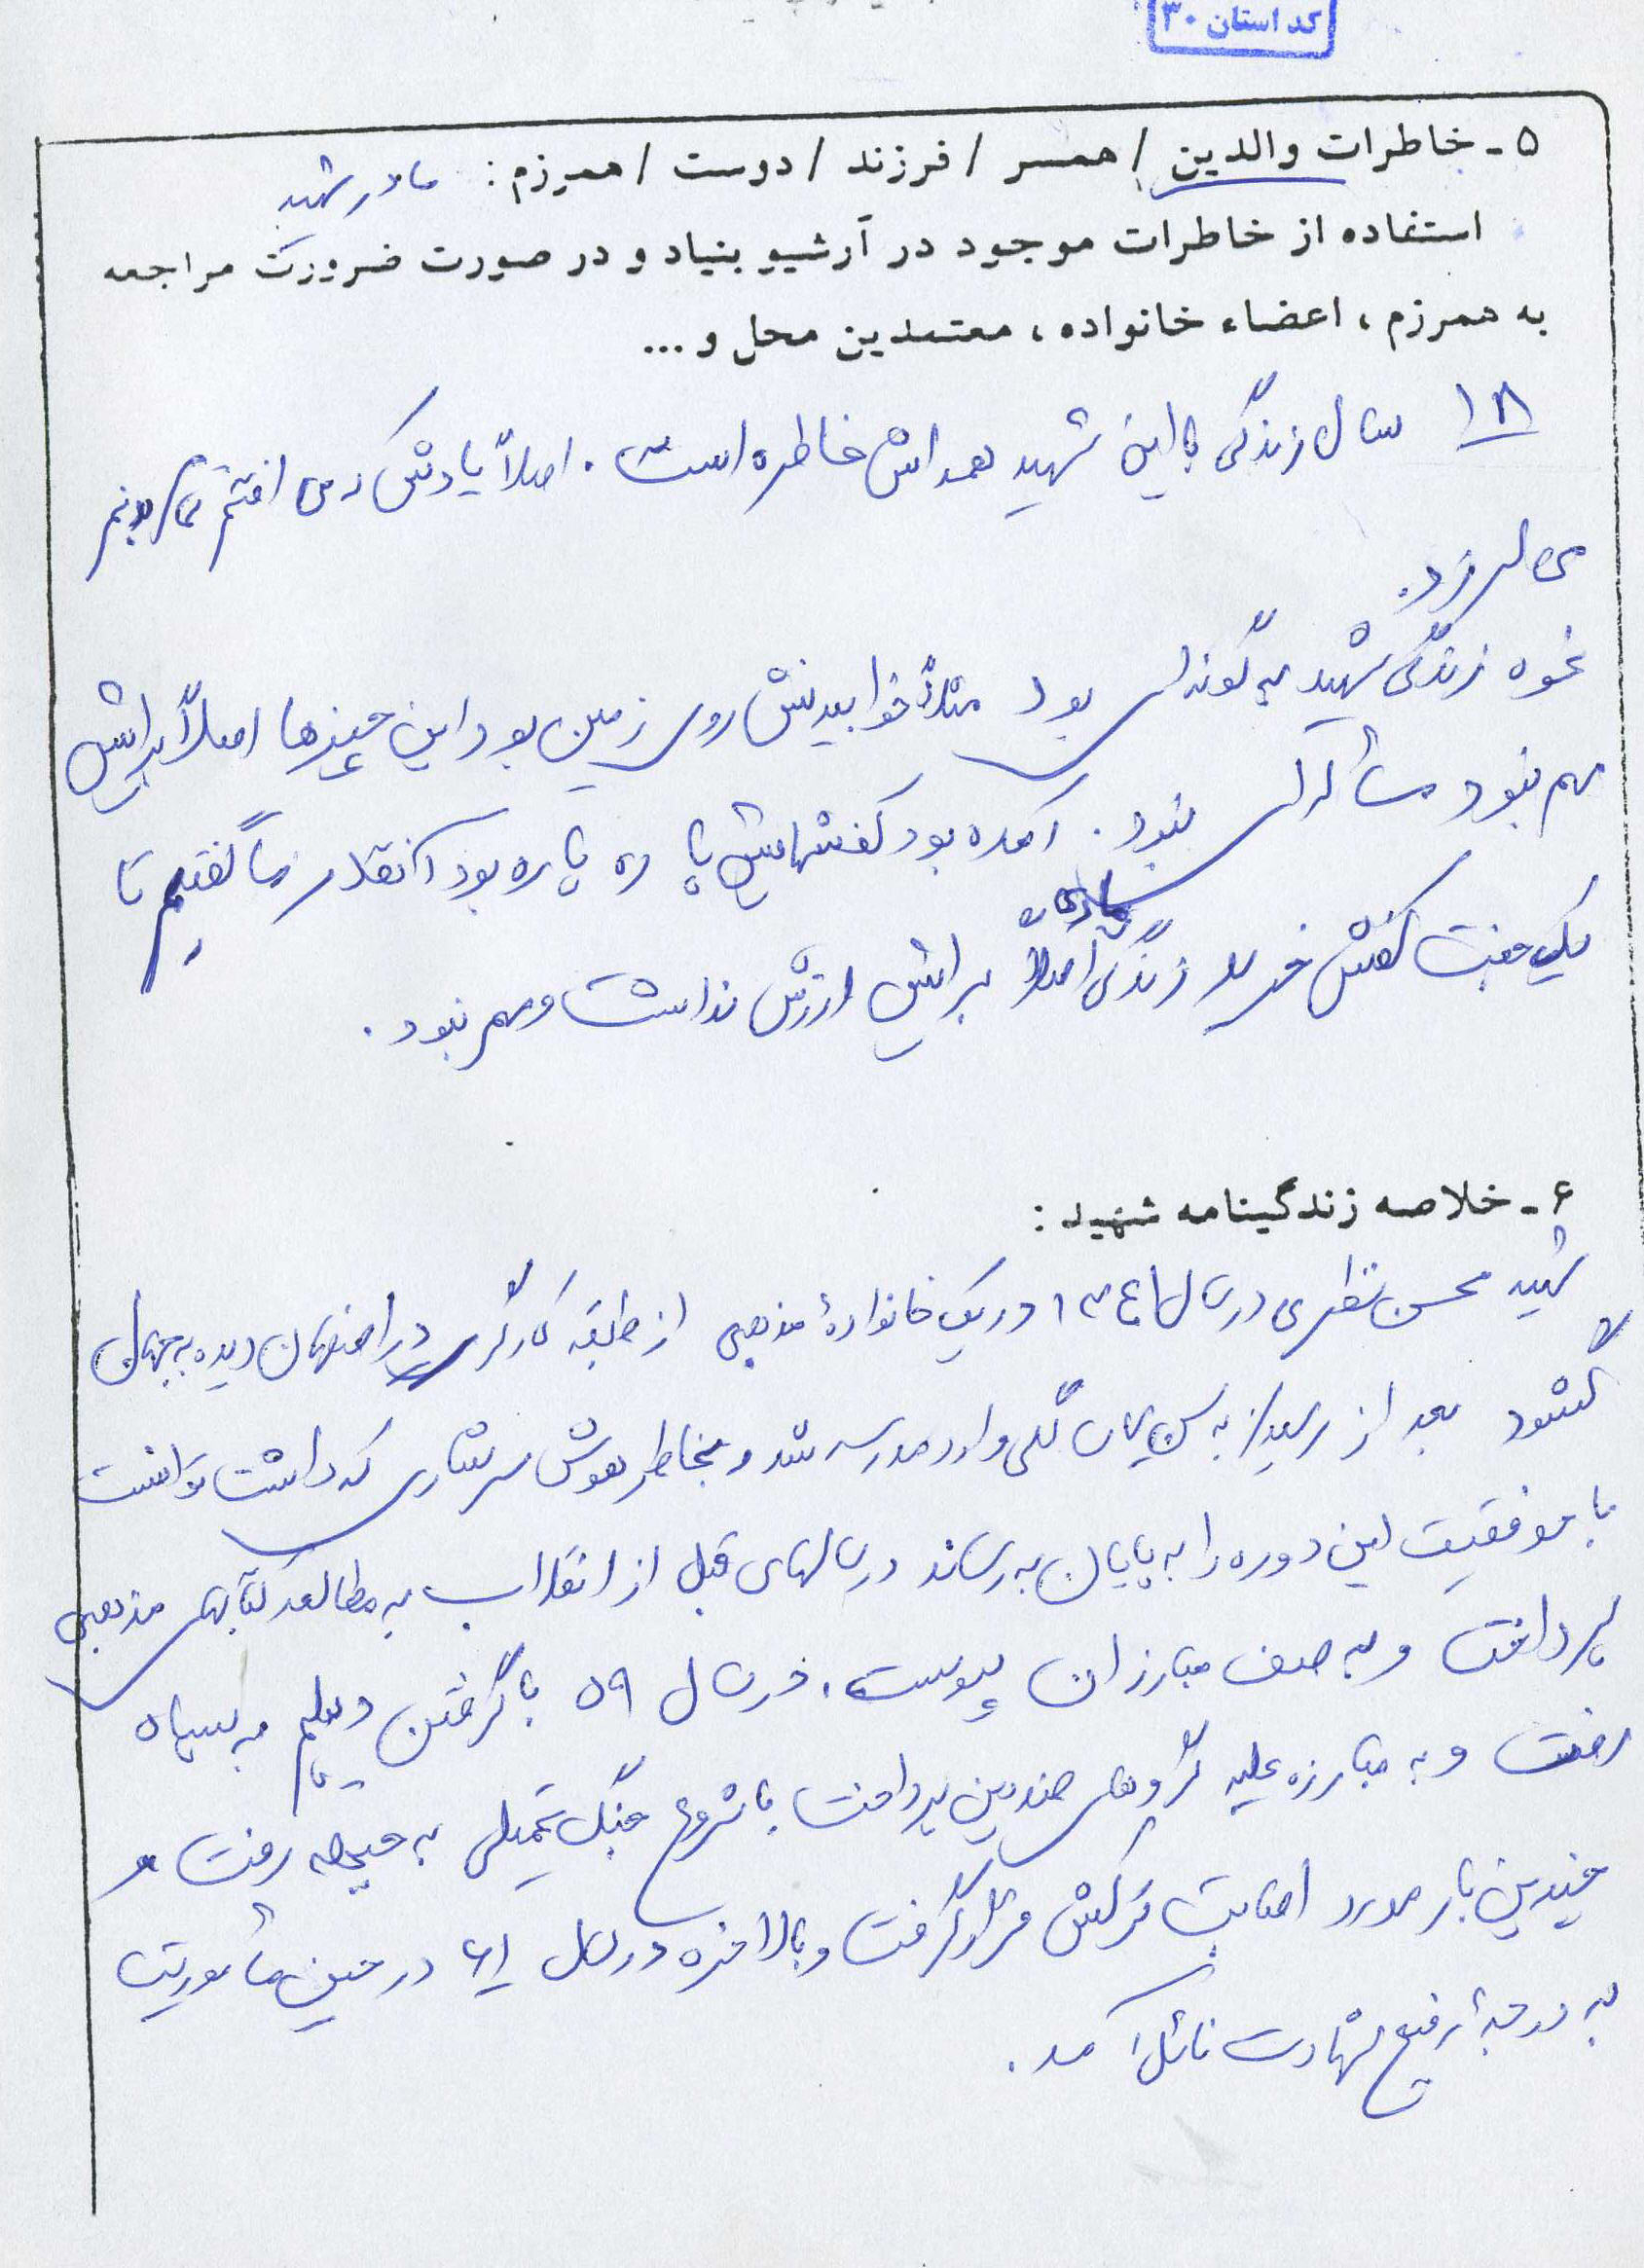 کد استان ۳۰
۵ ـ خاطرات والدین / همسر / فرزند / دوست / همرزم : مادر شهید
استفاده از خاطرات موجود در آرشیو بنیاد و در صورت ضرورت مراجعه
به همرزم ، اعضاء خانواده ، معتمدین محل و ...
۱۸ سال زندگی با این شهید همه اش خاطره است . اصلاً یادش که می افتم تمام بدنم
می لرزد.
نحوه زندگی شهید به گونه ای بود مثلاً خوابیدنش روی زمین بود این چیزها اصلاً برایش
مهم نبود مسأله ای نبود . آمده بود کفشهایش پاره پاره بود آنقدر ما گفتیم تا
یک جفت کفش خرید زندگی مادی اصلاً برایش ارزش نداشت و مهم نبود .
۶ ـ خلاصه زندگینامه شهید :
شهید محسن نظری در سال ۱۳۴۱ در یک خانوادهٔ مذهبی از طبقه کارگر در اصفهان دیده به جهان
گشود بعد از رسیدن به سن ۷ سالگی وارد مدرسه شد و بخاطر هوش سرشاری که داشت توانست
با موفقیت این دوره را به پایان به رساند در سالهای قبل از انقلاب به مطالعه کتابهای مذهبی
پرداخت و به صف مبارزان پیوست . در سال ۵۹ با گرفتن دیپلم به سپاه
رفت و به مبارزه علیه گروههای ضد دین پرداخت با شروع جنگ تحمیلی به جبهه رفت و
چندین بار مورد اصابت ترکش قرار گرفت و بالاخره در سال ۶۱ در حین مأموریت
به درجهٔ رفیع شهادت نائل آمد .